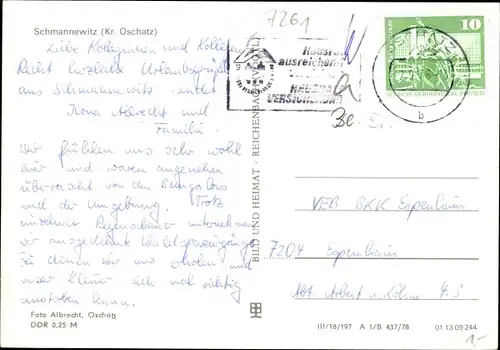 Schmannewitz (Kr. Oschatz)
7261
Liebe Kolleginnen und Kollegen
Recht herzliche Urlaubsgrüße
aus Schmannewitz sendet
Ilona Albrecht und
Familie.
Wir fühlen uns sehr wohl
hier und waren angenehm
überrascht von den Bungalows
und der Umgebung. Trotz
Regenschauer unternehmen
wir ausgedehnte Waldspaziergänge
Da können wir uns erholen und
unser Kleiner sich mal richtig
austoben
Foto Albrecht, Oschatz
DDR 0,25 M
BILD UND HEIMAT · REICHENBACH (VOGTL)
Hausrat
ausreichend
HAUSHALT
VERSICHERUNG
10
b
VEB BKK
7204
Abt. Arbeit u. Löhne
III/18/197 A 1/B 437/78 01 13 09 244
1,-